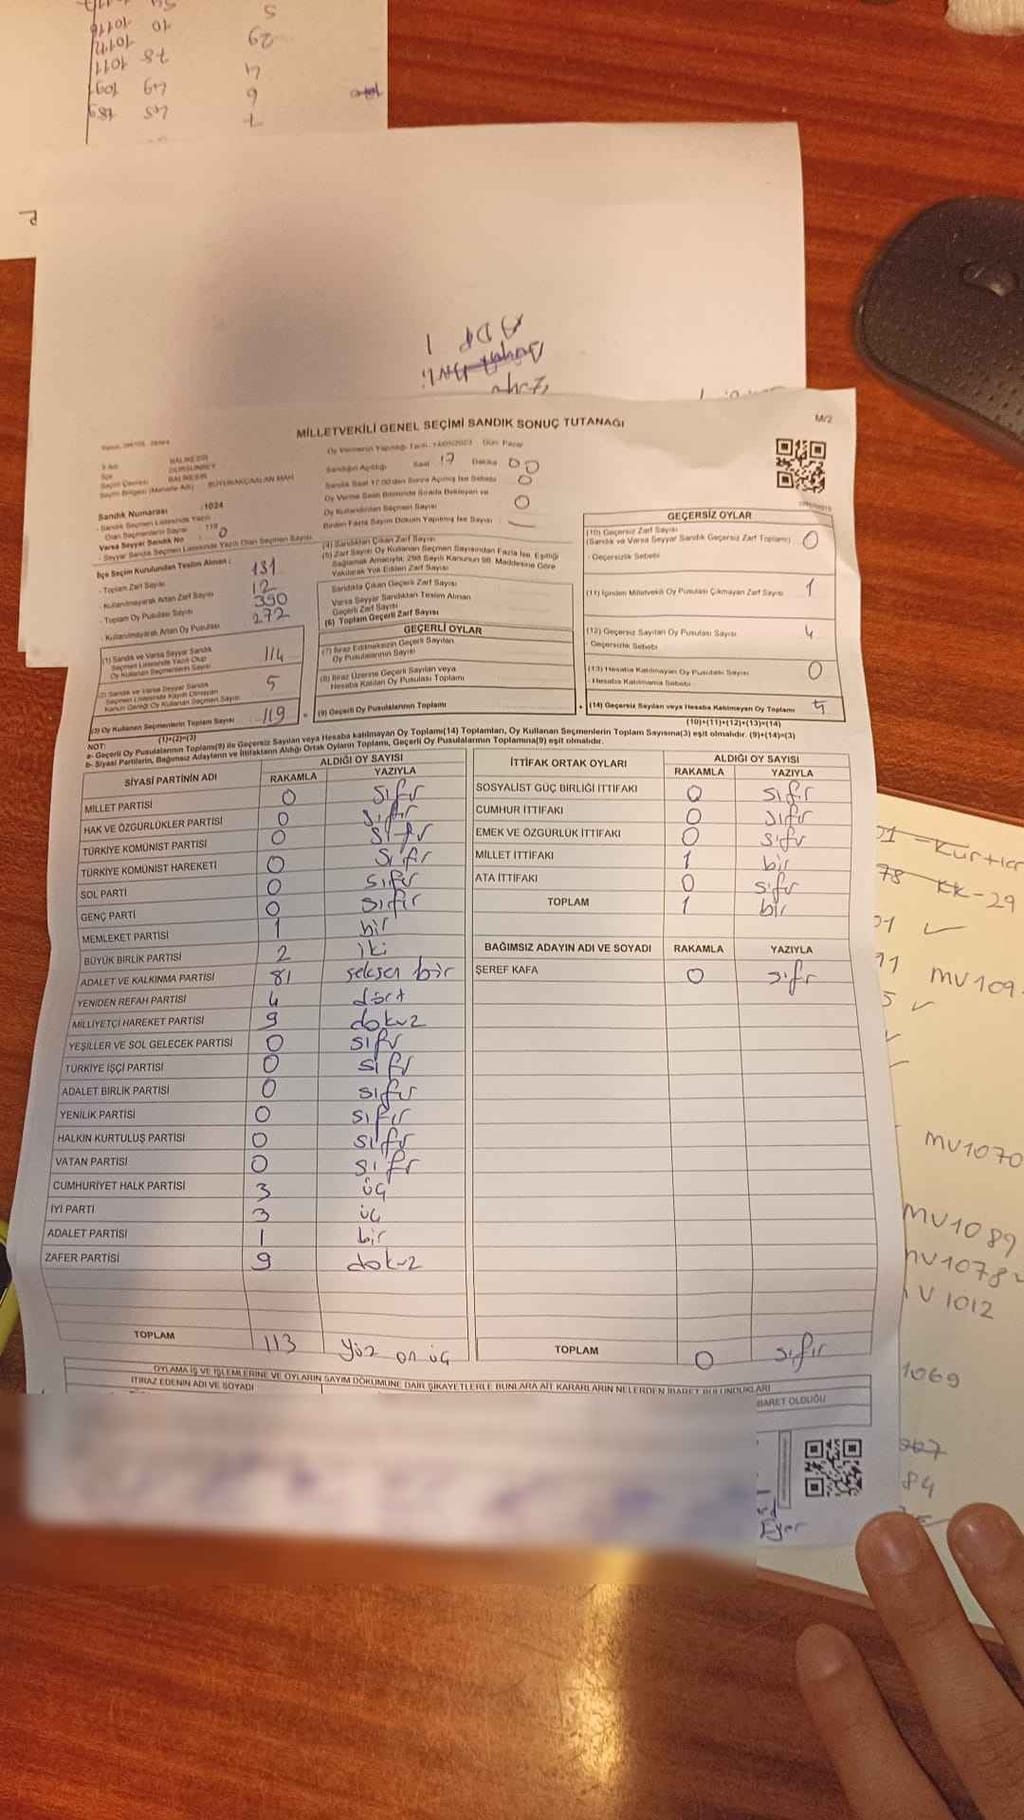 MİLLETVEKİLİ GENEL SEÇİMİ SANDIK SONUÇ TUTANAĞI
M/2
BALIKESİR
DURSUNBEY
BALIKESİR
BÜYÜKAKÇAALAN MAH
Sandığın Açıldığı Saat 17 Dakika 00
Sandık Saat 17:00'den Sonra Açılmış İse Sebebi 0
Oy Verme Saati Bitiminde Sırada Bekleyen ve
Oy Kullandırılan Seçmen Sayısı 0
Birden Fazla Sayım Döküm Yapılmış İse Sayısı
Sandık Numarası :1024
Varsa Seyyar Sandık No 0
- Seyyar Sandık Seçmen Listesinde Yazılı Olan Seçmenlerin Sayısı
İlçe Seçim Kurulundan Teslim Alınan :
- Toplam Zarf Sayısı 131
- Kullanılmayarak Artan Zarf Sayısı 12
- Toplam Oy Pusulası Sayısı 390
- Kullanılmayarak Artan Oy Pusulası 272
(1) Sandık ve Varsa Seyyar Sandık
Seçmen Listesinde Yazılı Olup
Oy Kullanan Seçmenlerin Sayısı 114
(2) Sandık ve Varsa Seyyar Sandık
Seçmen Listesinde Kayıtlı Olmayan
Kanun Gereği Oy Kullanan Seçmen Sayısı 5
(3) Oy Kullanan Seçmenlerin Toplam Sayısı 119
(1)+(2)=(3)
(4) Sandıktan Çıkan Zarf Sayısı
(5) Zarf Sayısı Oy Kullanan Seçmen Sayısından Fazla İse, Eşitliği
Sağlamak Amacıyla; 298 Sayılı Kanunun 98. Maddesine Göre
Yakılarak Yok Edilen Zarf Sayısı
Sandıkta Çıkan Geçerli Zarf Sayısı
Varsa Seyyar Sandıktan Teslim Alınan
Geçerli Zarf Sayısı
(6) Toplam Geçerli Zarf Sayısı
GEÇERLİ OYLAR
(7) İtiraz Edilmeksizin Geçerli Sayılan
Oy Pusulalarının Sayısı
(8) İtiraz Üzerine Geçerli Sayılan veya
Hesaba Katılan Oy Pusulası Toplamı
(9) Geçerli Oy Pusulalarının Toplamı
GEÇERSİZ OYLAR
(10) Geçersiz Zarf Sayısı
(Sandık ve Varsa Seyyar Sandık Geçersiz Zarf Toplamı) 0
- Geçersizlik Sebebi
(11) İçinden Milletvekili Oy Pusulası Çıkmayan Zarf Sayısı 1
(12) Geçersiz Sayılan Oy Pusulası Sayısı 4
- Geçersizlik Sebebi
(13) Hesaba Katılmayan Oy Pusulası Sayısı 0
- Hesaba Katılmama Sebebi
(14) Geçersiz Sayılan veya Hesaba Katılmayan Oy Toplamı
(10)+(11)+(12)+(13)=(14)
NOT:
a- Geçerli Oy Pusulalarının Toplamı(9) ile Geçersiz Sayılan veya Hesaba katılmayan Oy Toplamı(14) Toplamları, Oy Kullanan Seçmenlerin Toplam Sayısına(3) eşit olmalıdır. (9)+(14)=(3)
b- Siyasi Partilerin, Bağımsız Adayların ve İttifakların Aldığı Ortak Oyların Toplamı, Geçerli Oy Pusulalarının Toplamına(9) eşit olmalıdır.
SİYASİ PARTİNİN ADI ALDIĞI OY SAYISI
RAKAMLA YAZIYLA
MİLLET PARTİSİ 0 sıfır
HAK VE ÖZGÜRLÜKLER PARTİSİ 0 sıfır
TÜRKİYE KOMÜNİST PARTİSİ 0 sıfır
TÜRKİYE KOMÜNİST HAREKETİ 0 sıfır
SOL PARTİ 0 sıfır
GENÇ PARTİ 0 sıfır
MEMLEKET PARTİSİ 1 bir
BÜYÜK BİRLİK PARTİSİ 2 iki
ADALET VE KALKINMA PARTİSİ 81 seksen bir
YENİDEN REFAH PARTİSİ 4 dört
MİLLİYETÇİ HAREKET PARTİSİ 9 dokuz
YEŞİLLER VE SOL GELECEK PARTİSİ 0 sıfır
TÜRKİYE İŞÇİ PARTİSİ 0 sıfır
ADALET BİRLİK PARTİSİ 0 sıfır
YENİLİK PARTİSİ 0 sıfır
HALKIN KURTULUŞ PARTİSİ 0 sıfır
VATAN PARTİSİ 0 sıfır
CUMHURİYET HALK PARTİSİ 3 üç
İYİ PARTİ 3 üç
ADALET PARTİSİ 1 bir
ZAFER PARTİSİ 9 dokuz
TOPLAM 113 yüz on üç
İTTİFAK ORTAK OYLARI ALDIĞI OY SAYISI
RAKAMLA YAZIYLA
SOSYALİST GÜÇ BİRLİĞİ İTTİFAKI 0 sıfır
CUMHUR İTTİFAKI 0 sıfır
EMEK VE ÖZGÜRLÜK İTTİFAKI 0 sıfır
MİLLET İTTİFAKI 1 bir
ATA İTTİFAKI 0 sıfır
TOPLAM 1 bir
BAĞIMSIZ ADAYIN ADI VE SOYADI RAKAMLA YAZIYLA
ŞEREF KAFA 0 sıfır
TOPLAM 0 sıfır
OYLAMA İŞ VE İŞLEMLERİNE VE OYLARIN SAYIM DÖKÜMÜNE DAİR ŞİKAYETLERLE BUNLARA AİT KARARLARIN NELERDEN İBARET BULUNDUKLARI
İTİRAZ EDENİN ADI VE SOYADI
BARET OLDUĞU
KK-29
MV109
MV1070
MV1089
MV1078
V 1012
1069
84